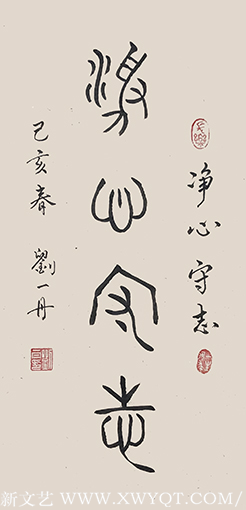 淨心守志
净心守志
己亥春 劉一丹
新文艺 WWW.XWYQT.COM